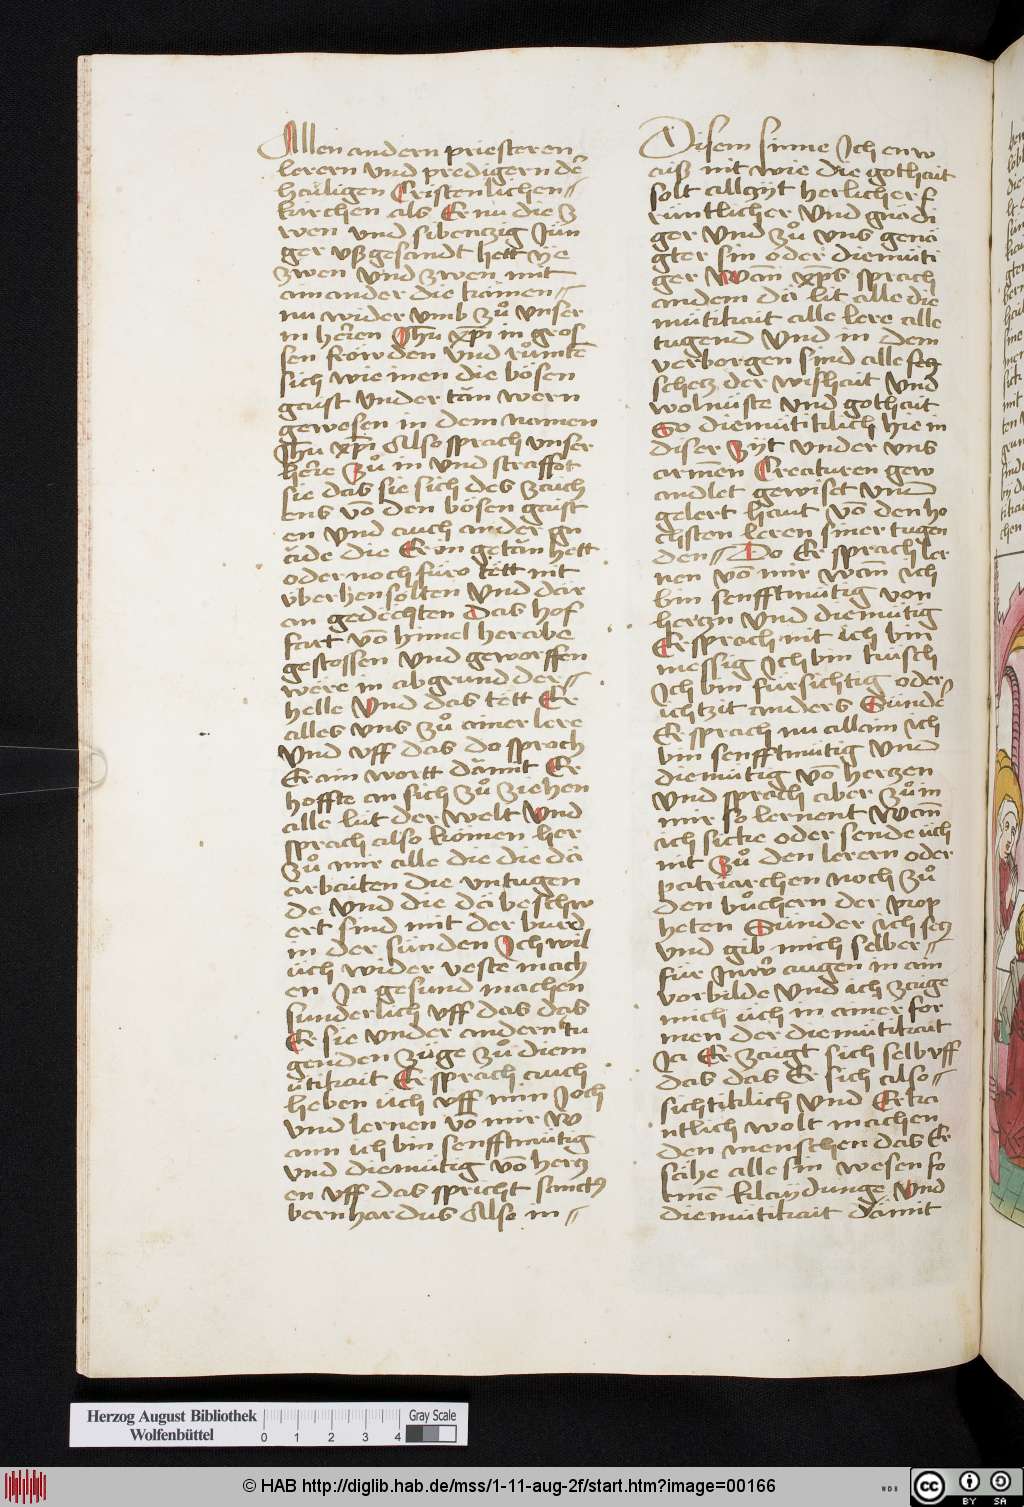 Allen andern priesteren
lerern vnd predigern der̄
hailigen Cristenlichen //
kirchen als Er nu die z
wen vnd sibentzig Jün
ger vßgesandt hett ye
zwen vnd zwen mit
ainander die kämen //
nu wider vmb zů vnser
m herren Jh̄u xp̄i in gros
sen fröwden vnd růmte
sich wie inen die bösen
gaist vnder tän wern
gewesen in dem namen
Jh̄u xp̄i Also sprach vnser
herre Zů in vnd straffot
sie das sie sich des zaich
ens vō den bösen gaist
en vnd auch ander gn
ade die Er in getän hett
oder noch füro tett nit
überhen solten vnd dar
an gedechten das hof
fart vō himel herabe
gestossen vnd geworffen
were in abgrund der //
helle Vnd das tett Er
alles vns zů ainer lere
Vnd vff das do sproch
Er ain wortt dämit Er
hoffte an sich zů ziehen
alle lüt der welt Vnd
sprach also kömen her
zů mir alle die die dä
arbaiten die vntugen
de vnd die dä beschw
ert sind mit der burd
in der sünden Jch wil
üch wider veste mach
en Ja gesund machen
sunderlich vff das das
Er sie vnder andern tu
genden züge zů diem
ütikait Er sprach auch
heben üch vff min Joch
vnd lernen vō mir w
ann ich bin senfftmütig
vnd diemütig vō hertz
en vff das spricht sanctus
bernhardus Also in //
Disem sinne Jch enw
aiß nit wie die gothait
solt allzyt herlicher f
rüntlicher vnd gnädi
ger vnd zů vns genä
gter sin oder diemüti
ger Wañ xp̄s sprach
an dem dä lit alle die
mütikait alle lere alle
tugend vnd in dem
verborgen sind alle
schetz der wishait vnd
wolnüste vnd gothait
So diemütiklich hie in
diser Zyt vnder vns
armen Creaturen gew
andlet gewiset vnd
gelert haut vō den ho
chsten leren siner tugen
den // Do Er sprach ler
nen vō mir wañ ich
bin senfftmütig von
hertzn vnd diemütig
Er sprach nit ich bin
messig Jch bin küsch
Jch bin fürsichtig oder
ichtzit anders Sünder
Er sprach nu allain ich
bin senfftmütig vnd
diemütig vō hertzen
vnd sprach aber zů in
mir so lernent Wañ
ich sicke oder sende üch
nit Zů den lerern oder
patriarchen noch zů
den bůchern der prop
heten Sünder ich
vnd gib mich selber //
für augen in ain
vorbilde vnd ich zaige
mich üch in ainer for
men der diemütikait
Ja Er zaugt sich selb vff
das das Er sich also //
sichtiklich vnd Erka
ntlich wolt machen
den menschen das Er
sähe alle sin wesen so
kinē klaydunge Vnd
diemütikait dämit
Herzog August Bibliothek
Wolfenbüttel
0 1 2 3 4
Gray Scale
© HAB http://diglib.hab.de/mss/1-11-aug-2f/start.htm?image=00166
WDB
cc BY SA